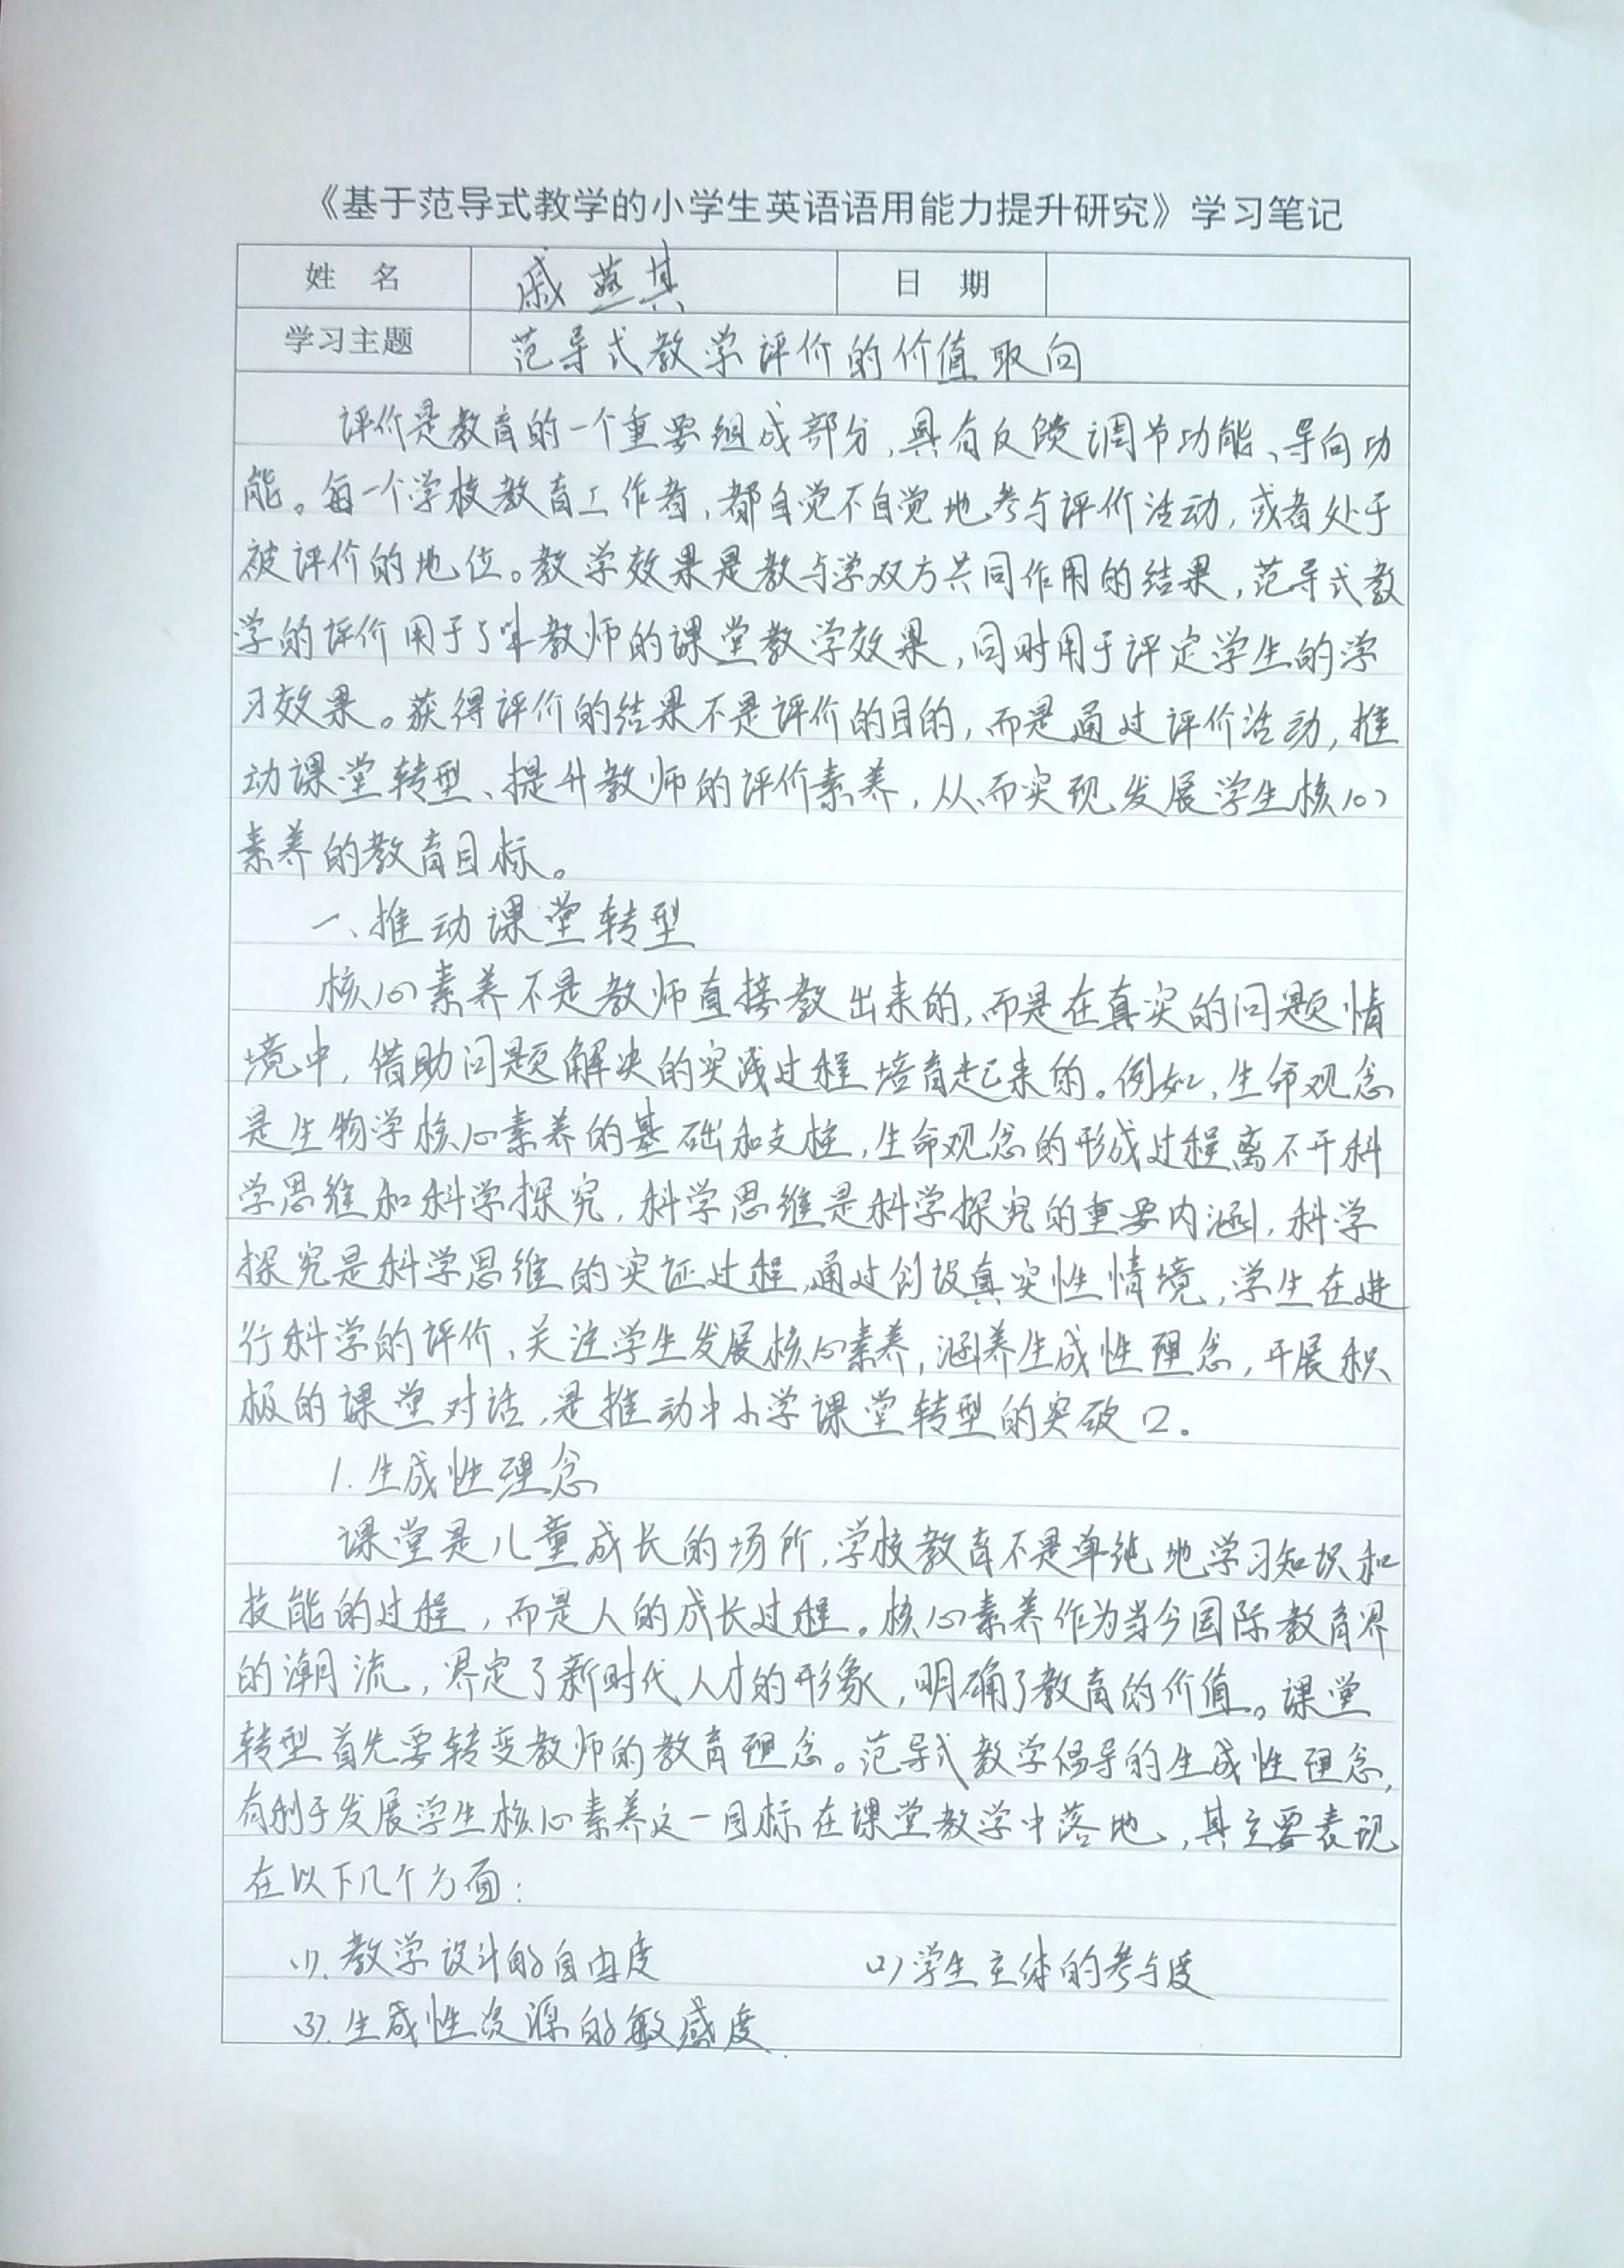 《基于范导式教学的小学生英语语用能力提升研究》学习笔记
姓 名 戚燕其 日 期
学习主题 范导式教学评价的价值取向
评价是教育的一个重要组成部分,具有反馈调节功能、导向功
能。每一个学校教育工作者,都自觉不自觉地参与评价活动,或者处于
被评价的地位。教学效果是教与学双方共同作用的结果,范导式教
学的评价用于评教师的课堂教学效果,同时用于评定学生的学
习效果。获得评价的结果不是评价的目的,而是通过评价活动,推
动课堂转型、提升教师的评价素养,从而实现发展学生核心
素养的教育目标。
一、推动课堂转型
核心素养不是教师直接教出来的,而是在真实的问题情
境中,借助问题解决的实践过程培育起来的。例如,生命观念
是生物学核心素养的基础和支柱,生命观念的形成过程离不开科
学思维和科学探究,科学思维是科学探究的重要内涵,科学
探究是科学思维的实证过程,通过创设真实性情境,学生在进
行科学的评价、关注学生发展核心素养,涵养生成性理念,开展积
极的课堂对话,是推动中小学课堂转型的突破口。
1.生成性理念
课堂是儿童成长的场所,学校教育不是单纯地学习知识和
技能的过程,而是人的成长过程。核心素养作为当今国际教育界
的潮流,界定了新时代人才的形象,明确了教育的价值。课堂
转型首先要转变教师的教育理念。范导式教学倡导的生成性理念,
有利于发展学生核心素养这一目标在课堂教学中落地,其主要表现
在以下几个方面:
(1).教学设计的自由度 (2)学生主体的参与度
(3).生成性资源的敏感度